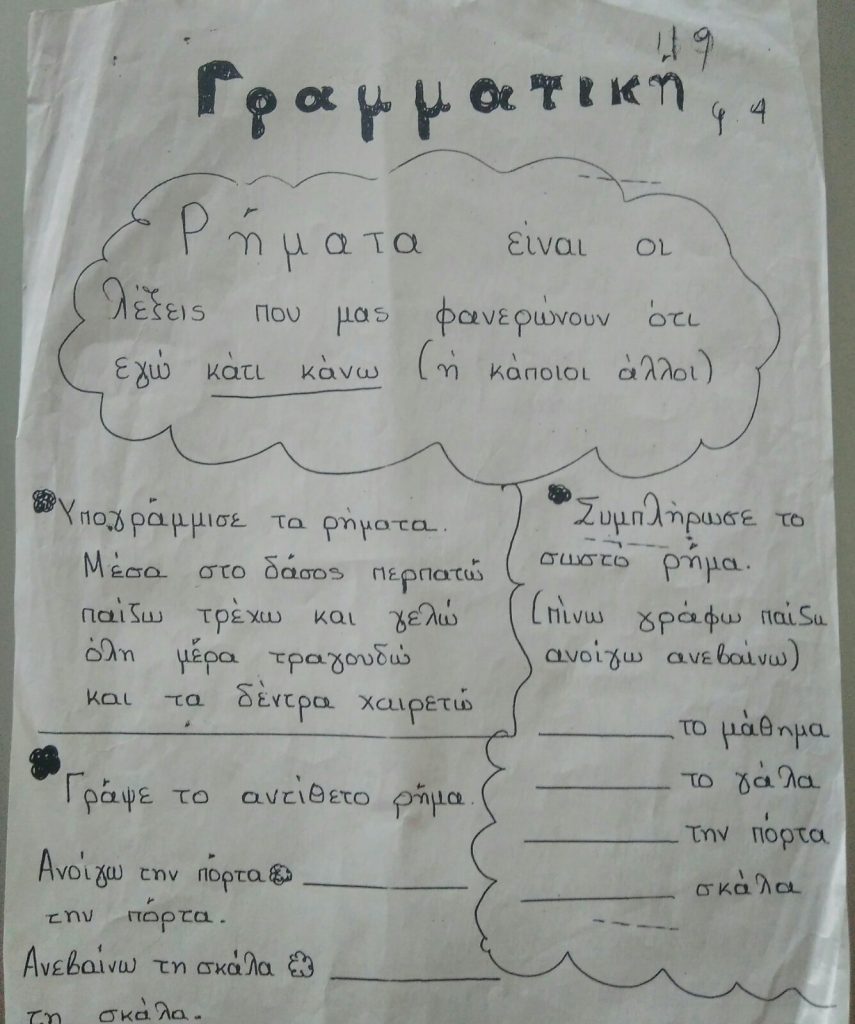 Γραμματική
49
φ. 4
Ρήματα είναι οι
λέξεις που μας φανερώνουν ότι
εγώ κάτι κάνω (ή κάποιοι άλλοι)
Υπογράμμισε τα ρήματα.
Μέσα στο δάσος περπατώ
παίζω τρέχω και γελώ
όλη μέρα τραγουδώ
και τα δέντρα χαιρετώ
Συμπλήρωσε το
σωστό ρήμα.
(πίνω γράφω παίζω
ανοίγω ανεβαίνω)
_____ το μάθημα
_____ το γάλα
_____ την πόρτα
_____ σκάλα
Γράψε το αντίθετο ρήμα.
Ανοίγω την πόρτα _____
την πόρτα.
Ανεβαίνω τη σκάλα _____
τη σκάλα.